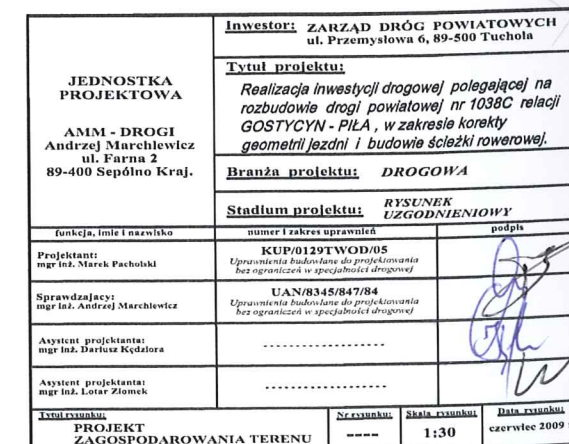 Inwestor: ZARZĄD DRÓG POWIATOWYCH
ul. Przemysłowa 6, 89-500 Tuchola
JEDNOSTKA
PROJEKTOWA
AMM - DROGI
Andrzej Marchlewicz
ul. Farna 2
89-400 Sępólno Kraj.
Tytuł projektu:
Realizacja inwestycji drogowej polegającej na
rozbudowie drogi powiatowej nr 1038C relacji
GOSTYCYN - PIŁA , w zakresie korekty
geometrii jezdni i budowie ścieżki rowerowej.
Branża projektu: DROGOWA
Stadium projektu: RYSUNEK
UZGODNIENIOWY
funkcja, imię i nazwisko numer i zakres uprawnień podpis
Projektant:
mgr inż. Marek Pacholski
KUP/0129TWOD/05
Uprawnienia budowlane do projektowania
bez ograniczeń w specjalności drogowej
Sprawdzający:
mgr inż. Andrzej Marchlewicz
UAN/8345/847/84
Uprawnienia budowlane do projektowania
bez ograniczeń w specjalności drogowej
Asystent projektanta:
mgr inż. Dariusz Kędziora
------------------
Asystent projektanta:
mgr inż. Lotar Ziomek
------------------
Tytuł rysunku: Nr rysunku: Skala rysunku: Data rysunku:
PROJEKT
ZAGOSPODAROWANIA TERENU
----
1:30
czerwiec 2009